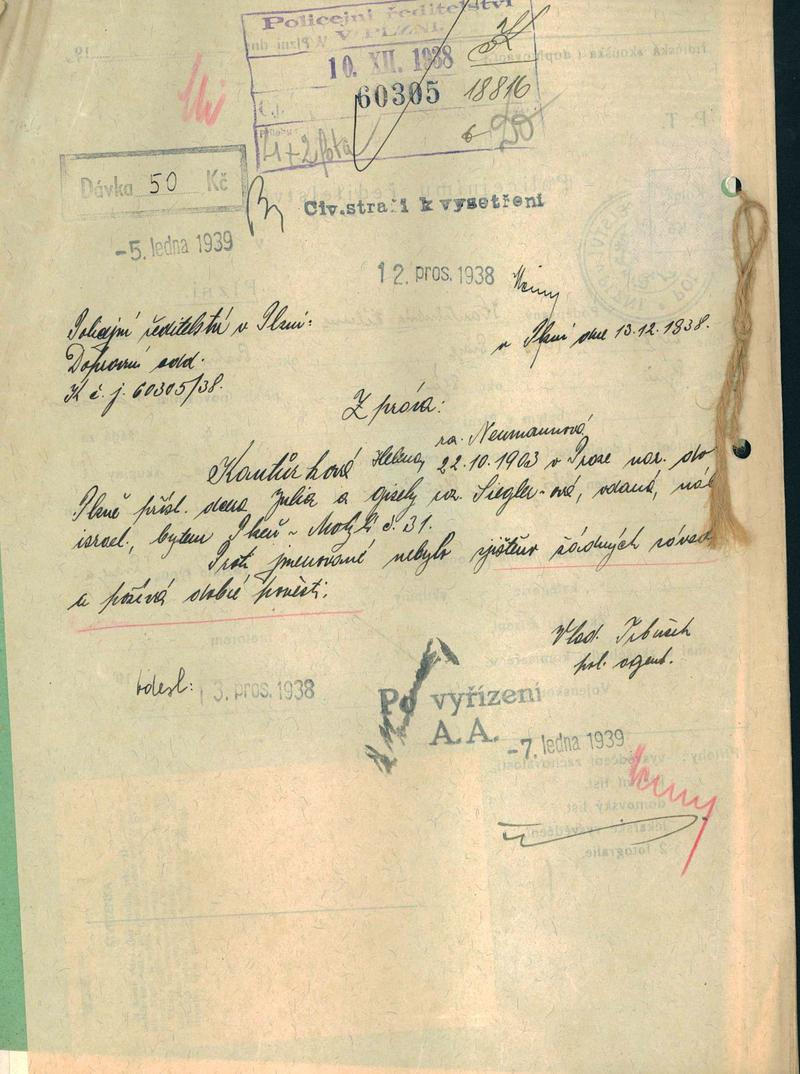 Policejní ředitelství
V PLZNI.
10. XII. 1938
Č.j. 60305 18816
4+2 fota 20
Dávka 50 Kč
Civ. stráži k vyšetření
-5. ledna 1939
12. pros. 1938
Policejní ředitelství v Plzni:
v Plzni dne 13.12.1938.
Dopravní odd.
K č. j. 60305/38.
Zpráva:
roz. Neumannová
Kantůrková Helena, 22.10.1903 v Praze nar. do
Plzně přísl. dcera Julia a Gisely roz. Siegler-ové, vdaná, náb.
israel., bytem Plzeň - č. 31.
Proti jmenované nebylo zjištěno žádných závad
a požívá dobré pověsti.
Vlad.
pol. agent.
odesl: 13. pros. 1938
Po vyřízení
A.A.
-7. ledna 1939